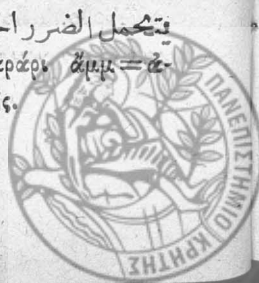 يتحمل الضرر
ἄμμ = ἀ-
ς.
ΠΑΝΕΠΙΣΤΗΜΙΟ ΚΡΗΤΗΣ